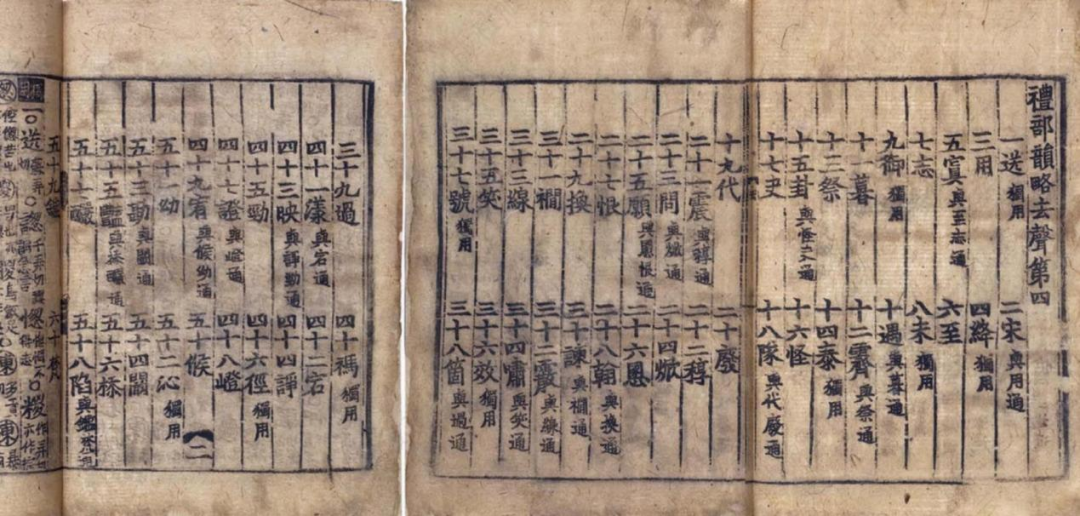 禮部韻略去聲第四
一送 獨用 二宋 與用通
三用 四絳 獨用
五寘 與至志通 六至
七志 八未 獨用
九御 獨用 十遇 與暮通
十一暮 十二霽 與祭通
十三祭 十四泰 獨用
十五卦 與怪夬通 十六怪
十七夬 十八隊 與代廢通
十九代 二十廢
二十一震 與稕通 二十二稕
二十三問 與焮通 二十四焮
二十五願 與慁恨通 二十六慁
二十七恨 二十八翰 與換通
二十九換 三十諫 與襉通
三十一襉 三十二霰 與線通
三十三線 三十四嘯 與笑通
三十五笑 三十六效 獨用
三十七號 獨用 三十八箇 與過通
三十九過 四十禡 獨用
四十一漾 與宕通 四十二宕
四十三映 與諍勁通 四十四諍
四十五勁 四十六徑 獨用
四十七證 與嶝通 四十八嶝
四十九宥 與候幼通 五十候
五十一幼 五十二沁 獨用
五十三勘 與闞通 五十四闞
五十五豔 與㮇釅通 五十六㮇
五十七釅 五十八陷 與鑑梵通
五十九鑑 六十梵
一○送